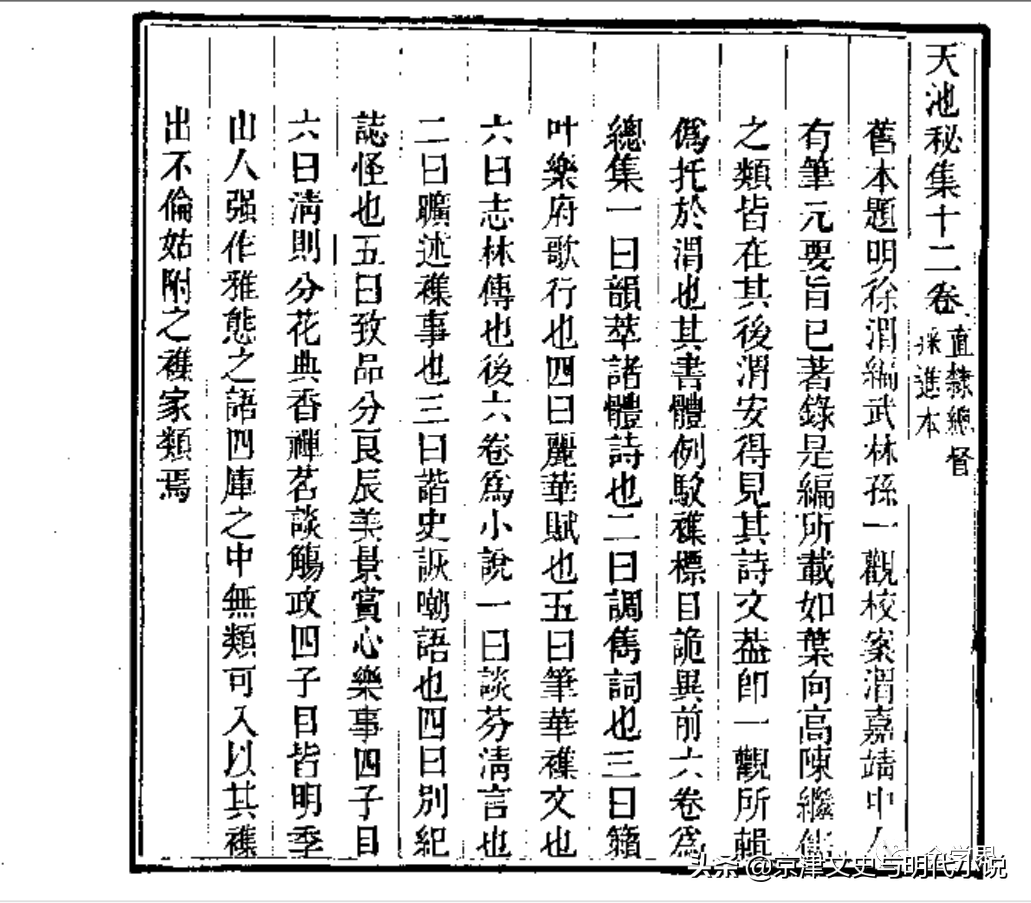 天池秘集十二卷 直隸總督採進本
舊本題明徐渭編武林孫一觀校案渭嘉靖中人
有筆元要旨已著錄是編所載如葉向高陳繼儒
之類皆在其後渭安得見其詩文葢卽一觀所輯
僞托於渭也其書體例駁襍標目詭異前六卷爲
總集一曰韻萃諸體詩也二曰調雋詞也三曰籟
叶樂府歌行也四曰麗華賦也五曰筆華襍文也
六曰志林傳也後六卷爲小說一曰談芬淸言也
二曰曠述襍事也三曰諧史詼嘲語也四曰別紀
誌怪也五曰致品分良辰美景賞心樂事四子目
六曰淸則分花典香禪茗談觴政四子目皆明季
山人强作雅態之語四庫之中無類可入以其襍
出不倫姑附之襍家類焉
头条 @京津文史与明代小说